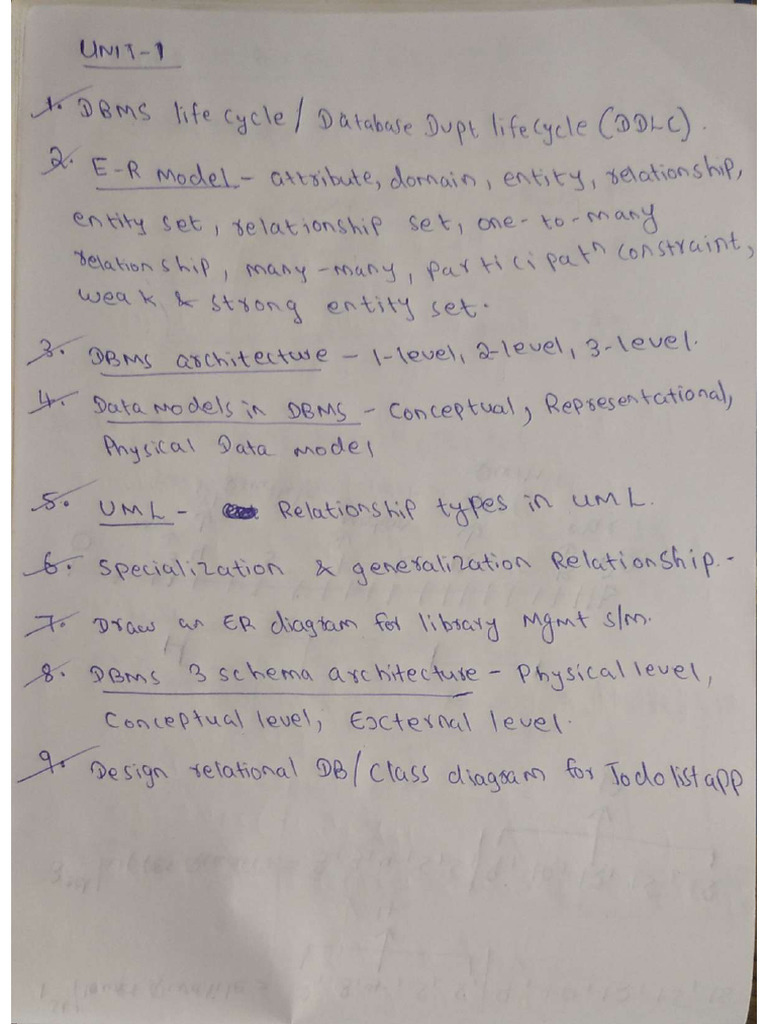 UNIT-1
1. DBMS life cycle / Database Dvpt lifecycle (DDLC).
2. E-R Model - attribute, domain, entity, relationship,
entity set, relationship set, one-to-many
relationship, many-many, participatn constraint,
weak & strong entity set.
3. DBMS architecture - 1-level, 2-level, 3-level.
4. Data Models in DBMS - Conceptual, Representational,
Physical Data model
5. UML - Relationship types in UML.
6. Specialization & generalization Relationship.-
7. Draw an ER diagram for library Mgmt s/m.
8. DBMS 3 schema architecture - Physical level,
Conceptual level, External level.
9. Design relational DB/Class diagram for Todo list app